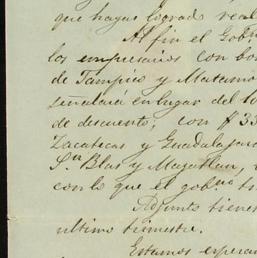 que hayas logrado real
Al fin el Gobno
los empresarios con bo
de Tampico y Matamo
señalará en lugar del 10
de descuento; con # 33
Zacatecas y Guadalajara
Sn Blas y Mazatlan,
con lo que el gobno
Adjunto tienes
ultimo trimestre.
Estamos esperan